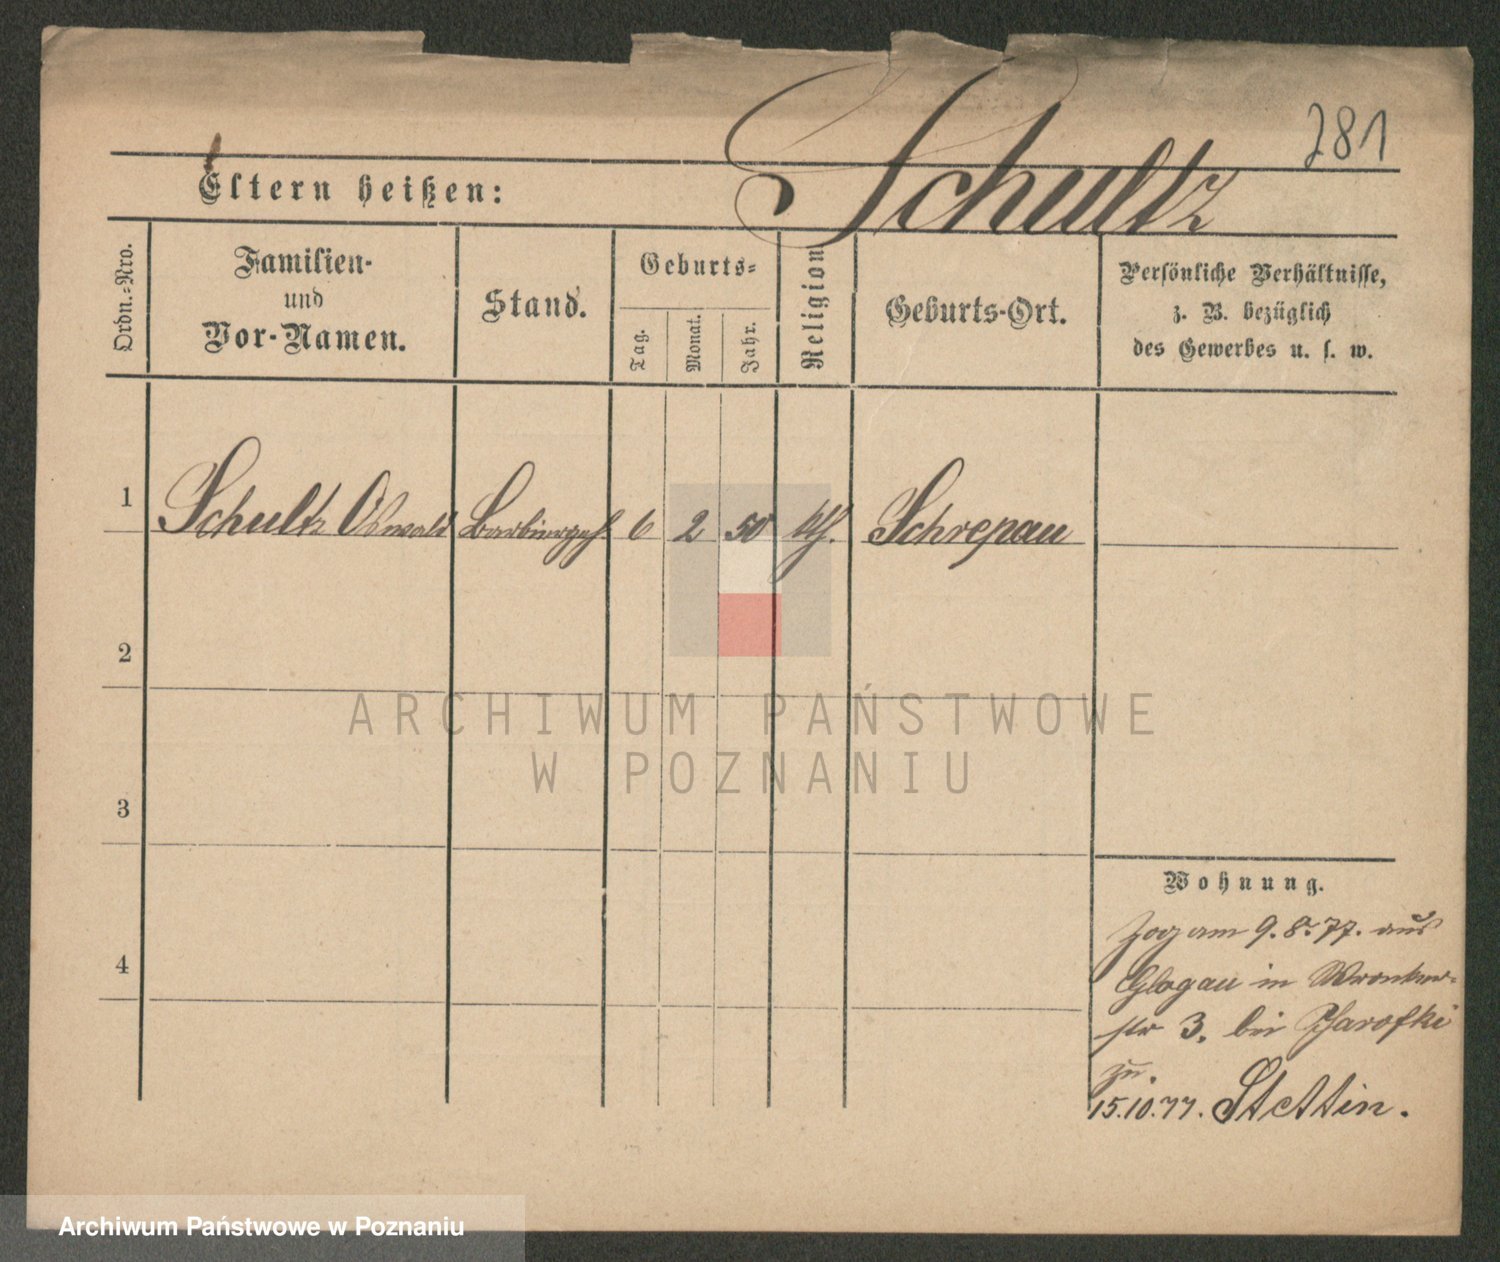 281
Schultz
Eltern heißen:
Ordn.-Nro.
Familien-
und
Vor-Namen.
Stand.
Geburts-
Tag.
Monat.
Jahr.
Religion
Geburts-Ort.
Persönliche Verhältnisse,
z. B. bezüglich
des Gewerbes u. s. w.
1 Schultz Oswald Barbiergeh. 6 2 50 Schrepau
2
3
4
ARCHIWUM PAŃSTWOWE
W POZNANIU
Wohnung.
Zog am 9.8.77. aus
Glogau in Wronker-
str 3. bei
zu.
15.10.77. Stettin.
Archiwum Państwowe w Poznaniu